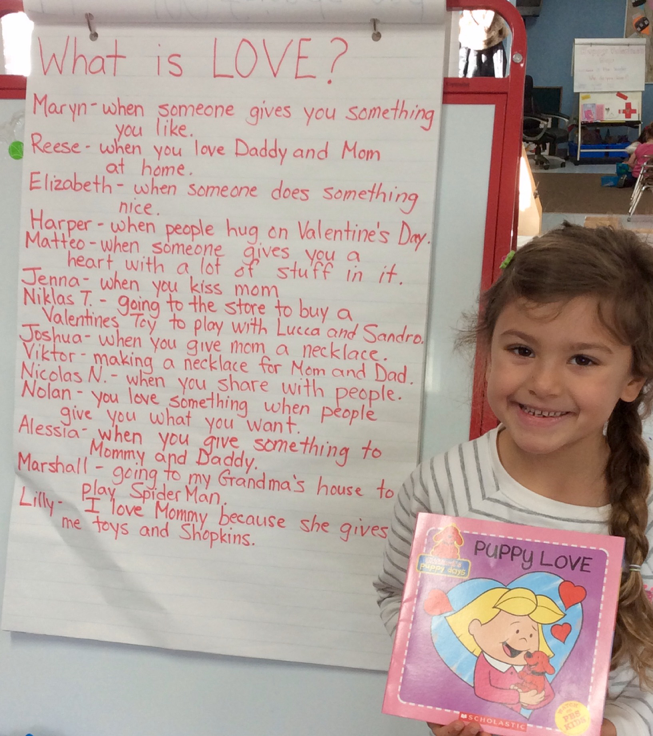 What is LOVE?
Maryn - when someone gives you something
you like.
Reese - when you love Daddy and Mom
at home.
Elizabeth - when someone does something
nice.
Harper - when people hug on Valentine's Day.
Matteo - when someone gives you a
heart with a lot of stuff in it.
Jenna - when you kiss mom
Niklas T. - going to the store to buy a
Valentines Toy to play with Lucca and Sandro.
Joshua - when you give mom a necklace.
Viktor - making a necklace for Mom and Dad.
Nicolas N. - when you share with people.
Nolan - you love something when people
give you what you want.
Alessia - when you give something to
Mommy and Daddy.
Marshall - going to my Grandma's house to
play SpiderMan.
Lilly - I love Mommy because she gives
me toys and Shopkins.
PUPPY LOVE
Puppy Days
SCHOLASTIC